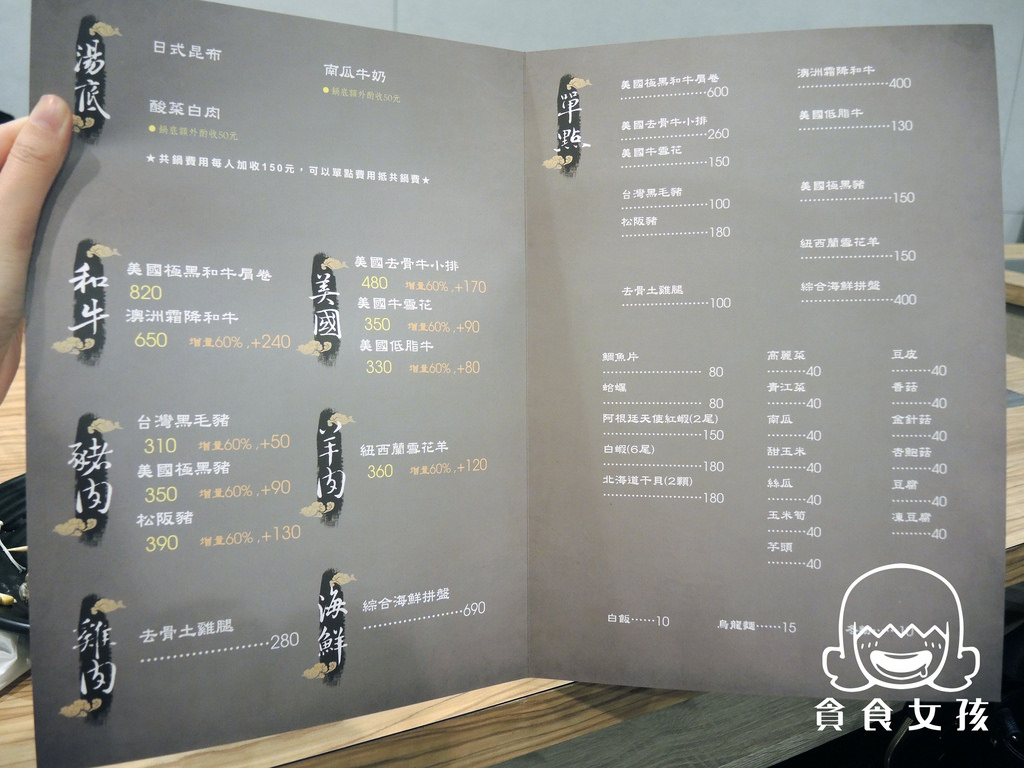 湯底
日式昆布
南瓜牛奶
●鍋底額外酌收50元
酸菜白肉
●鍋底額外酌收50元
★共鍋費用每人加收150元，可以單點費用抵共鍋費★
和牛
美國極黑和牛肩卷
820
澳洲霜降和牛
650 增量60%,+240
美國
美國去骨牛小排
480 增量60%,+170
美國牛雪花
350 增量60%,+90
美國低脂牛
330 增量60%,+80
豬肉
台灣黑毛豬
310 增量60%,+50
美國極黑豬
350 增量60%,+90
松阪豬
390 增量60%,+130
羊肉
紐西蘭雪花羊
360 增量60%,+120
雞肉
去骨土雞腿
280
海鮮
綜合海鮮拼盤
690
單點
美國極黑和牛肩卷
600
美國去骨牛小排
260
美國牛雪花
150
台灣黑毛豬
100
松阪豬
180
去骨土雞腿
100
澳洲霜降和牛
400
美國低脂牛
130
美國極黑豬
150
紐西蘭雪花羊
150
綜合海鮮拼盤
400
鯛魚片
80
蛤蠣
80
阿根廷天使紅蝦(2尾)
150
白蝦(6尾)
180
北海道干貝(2顆)
180
高麗菜
40
青江菜
40
南瓜
40
甜玉米
40
絲瓜
40
玉米筍
40
芋頭
40
豆皮
40
香菇
40
金針菇
40
杏鮑菇
40
豆腐
40
凍豆腐
40
白飯……10
烏龍麵……15
貪食女孩